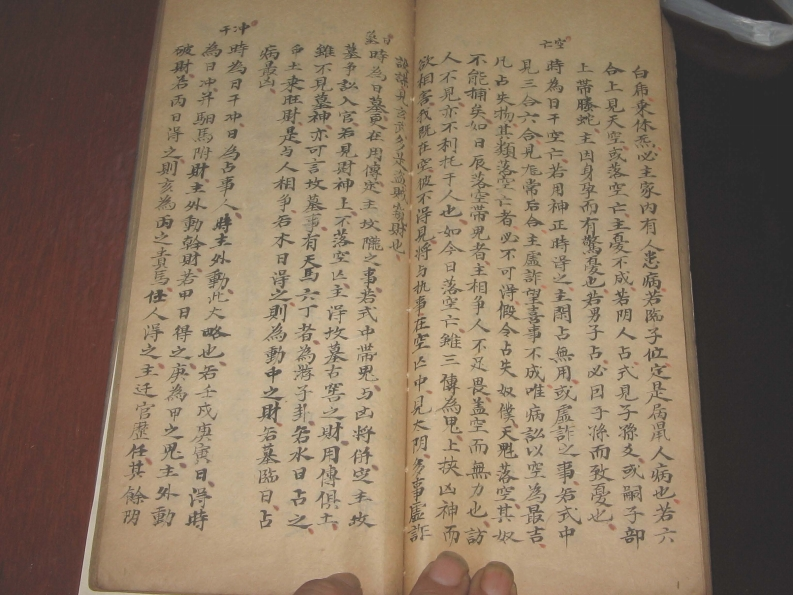 白虎乘休炁必主家內有人患病若臨子位定是屠鼠人病也若六
合上見天空或落空亡主憂不成若阴人占式見子孫爻或嗣子部
上帶螣蛇主因身孕而有驚憂也若男子占必因子孫而致憂也
空亡
時為日干空亡若用神正時得之主閑占無用或虛詐之事若式中
見三合六合見龙常后合主虛詐望喜事不成唯病訟以空為最吉
凡占失物其類落空亡者必不可得假令占失奴僕天魁落空其奴
不能捕矣如日辰落空帶鬼者主相争人不足畏盖空而無力也訪
人不見亦不利托干人也如今日落空亡雖三傳為鬼上挾凶神而
欲相害我既在空彼不得見將与执事在空亡中見太阴多事虛詐
謀
日墓
時為日墓更在用傳定主坟隴之事若式中帶鬼与凶將併定主坟
墓争訟入官若見財神上不落空亡主得坟墓古窖之財用傳俱土
雖不見墓神亦可言坟墓事有天馬六丁者為游子卦若水日占之
田土乘旺財是与人相争若木日得之則為動中之財若墓臨日占
病最凶
冲干
時為日干冲日為占事人時主外動此大略也若壬戌庚寅日得時
為日冲并駉馬附財主外動幹財若甲日得之庚為甲之鬼主外動
破財若丙日得之則亥為丙之貴馬任人得之主迁官歷任其餘阴